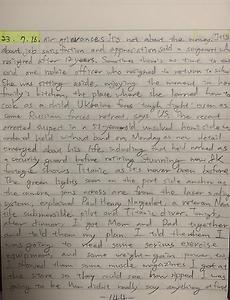 23. 7. 16. Air grievances it's not about the money. It's
about job satisfaction and appreciation said a sergeant who
resigned after 12 years. Sometimes there's no time to eat
said one male officer who resigned to return to
She was sitting aside, enjoying the moment in her
family's kitchen, the place where she learned how to
cook as a child. Ukraine faces tough fight even as
some Russian forces retreat, says US. The recent
arrested suspect in a unsolved
held without bail on Monday as new details
emerged about his life, including that he'd worked as
a security guard before retiring. Stunning new 4K
footage shows Titanic as it's never been before
The green lights seen on the port side anchor as
the camera comes across are from the laser scaling
system, explained Paul Henry Nargeolet, a veteran Nau-
tile submersible pilot and Titanic diver. Tonight
after dinner, I got Mom and Dad together
and told them my plan. I told them I
was going to need some serious exercise
equipment and some weight-gaining powder
I showed them some muscle magazines I got at
the store so they could see how ripped I was
going to be. Mom didn't really say anything at first
144